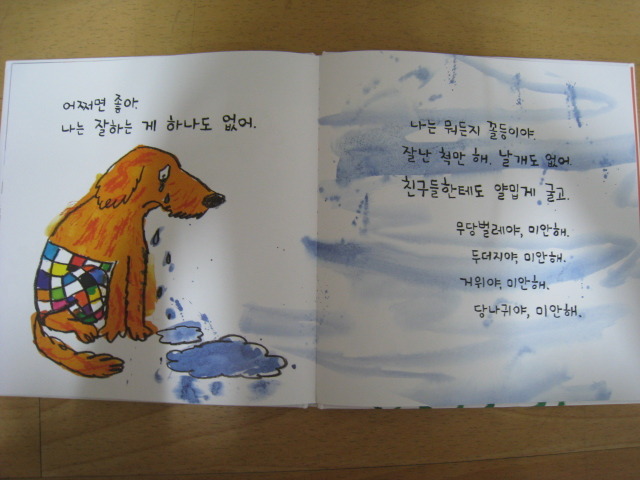 어쩌면 좋아.
나는 잘하는 게 하나도 없어.
나는 뭐든지 꼴등이야
잘난 척만 해. 날개도 없어.
친구들한테도 얄밉게 굴고.
무당벌레야, 미안해.
두더지야, 미안해.
거위야, 미안해.
당나귀야, 미안해.